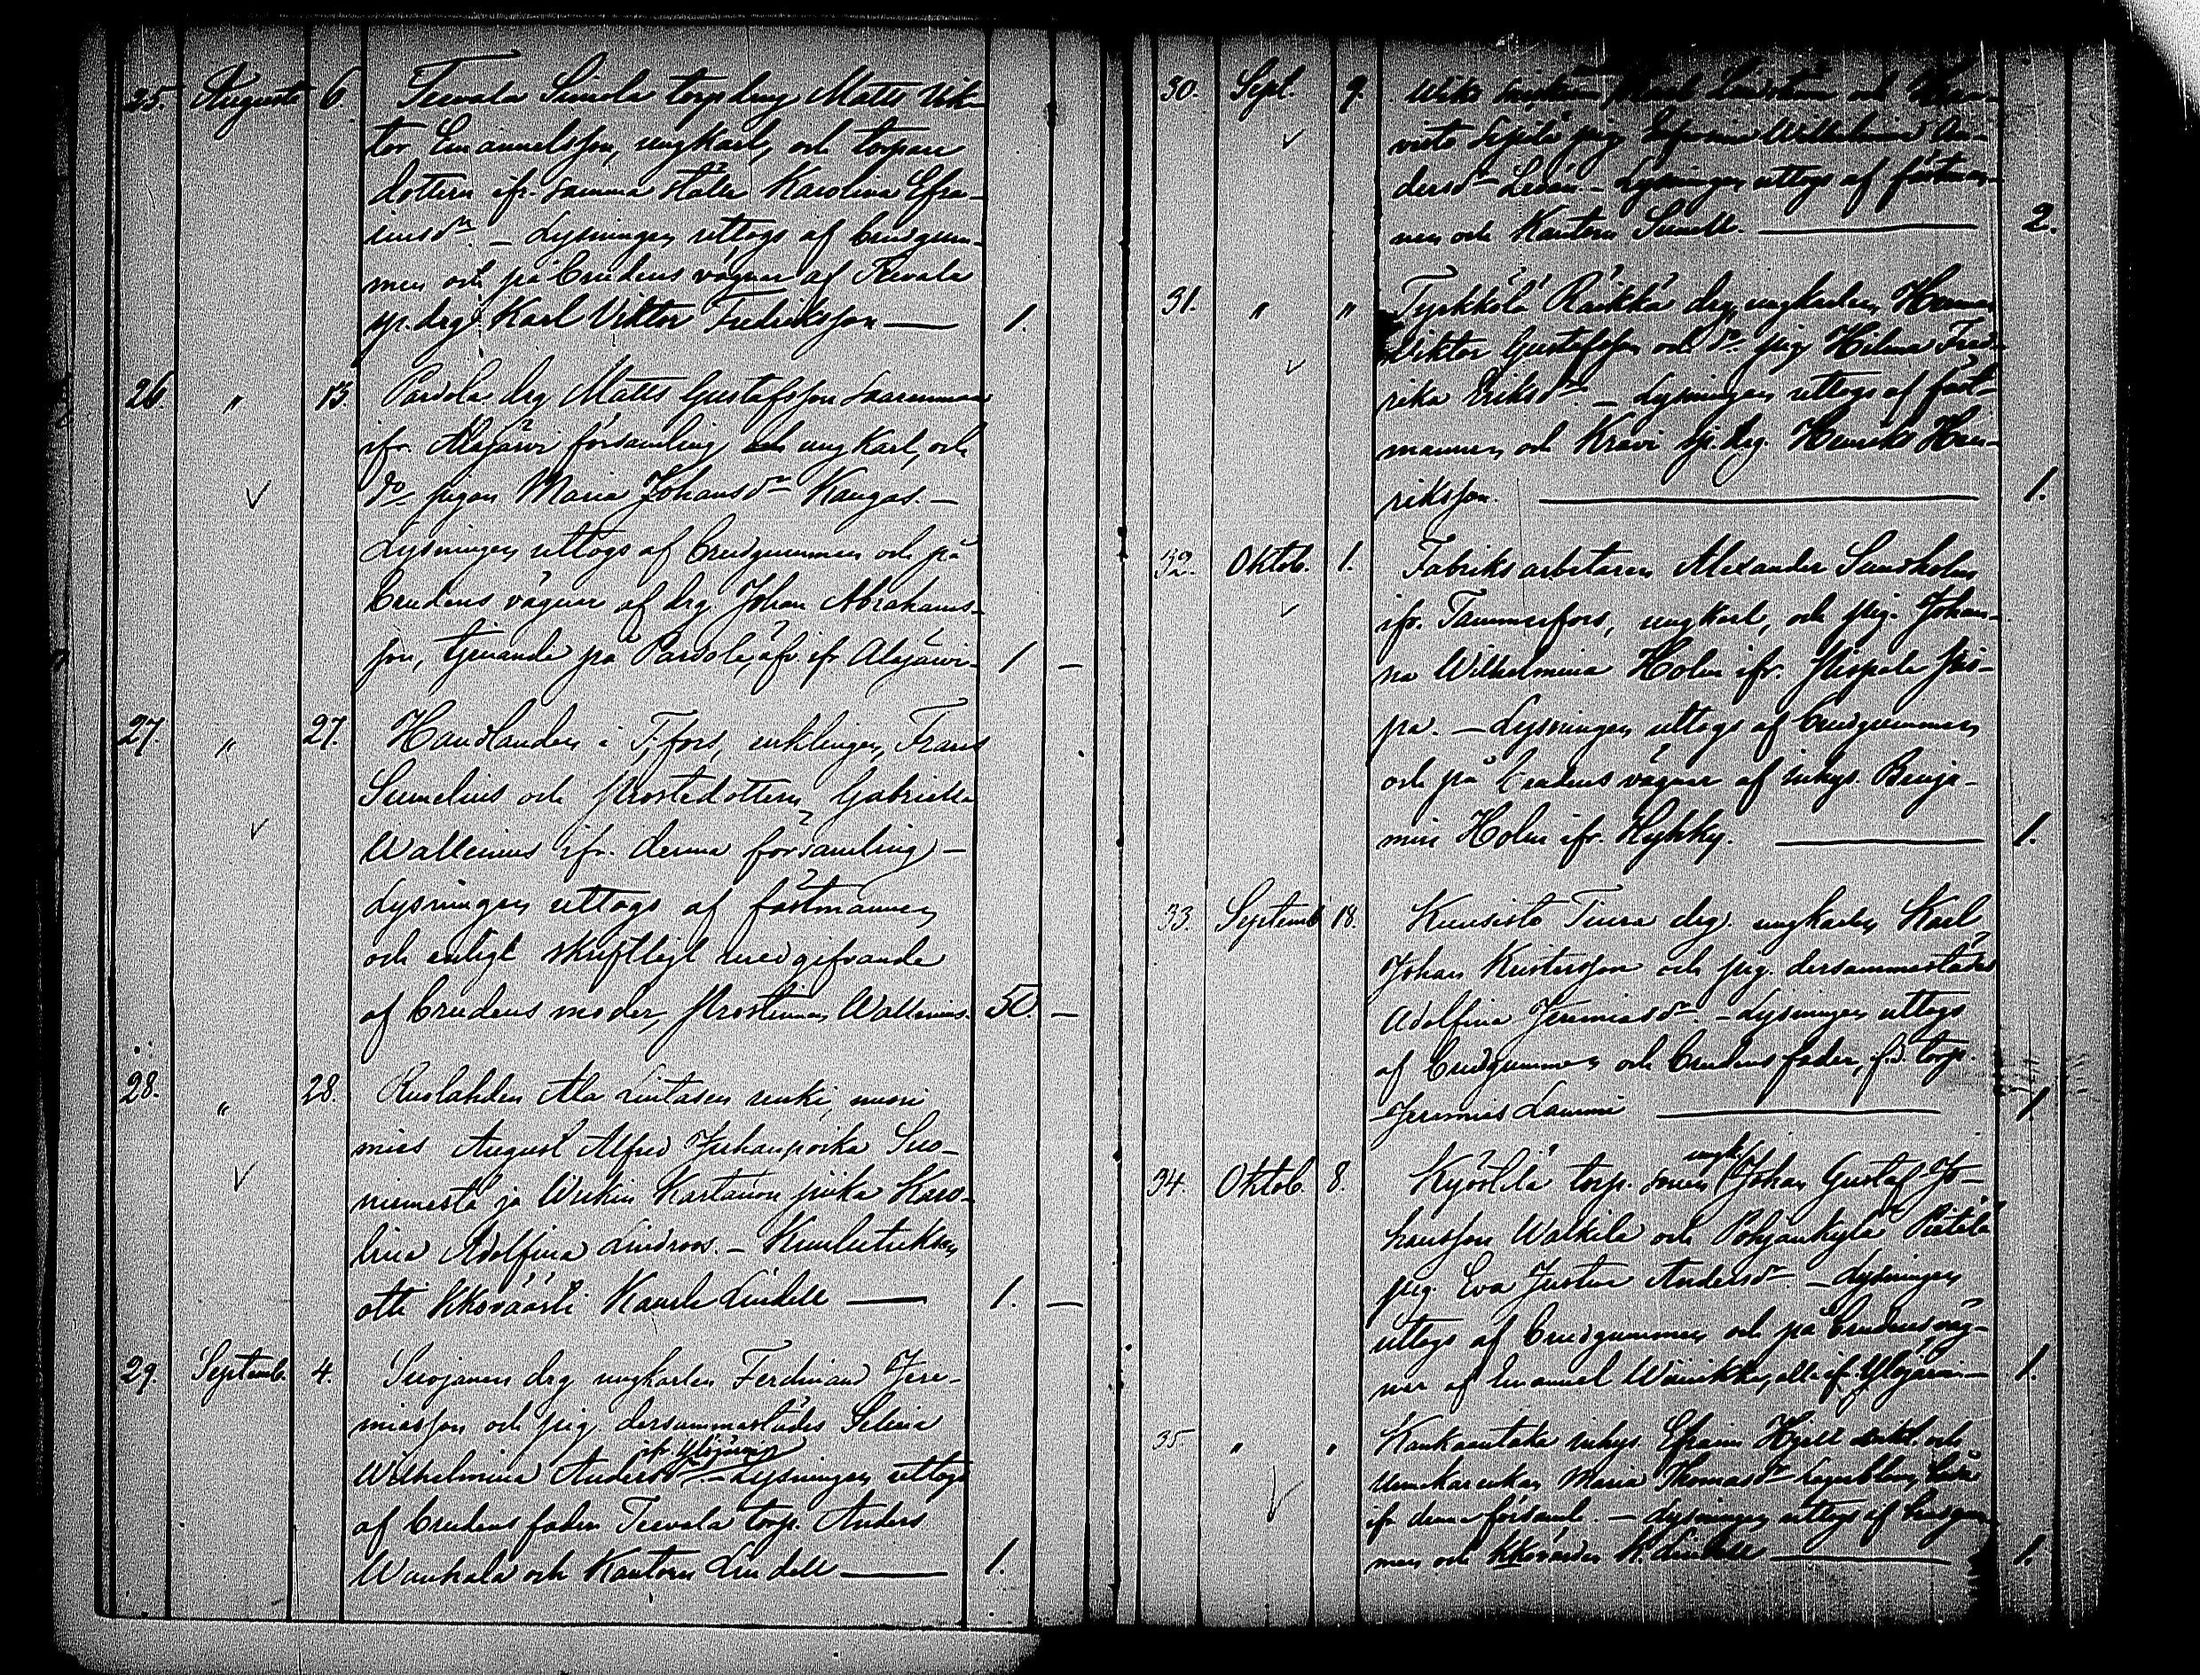 25. Augusti 6. Teevala Simola torpdrng Matts Vik-
tor Emanuelsson, ungkarl, och torpare
dottern ifr. samma ställe Karolina Efra-
imsdr. – Lysningen uttogs af brudgum-
men och på brudens vägnar af Teevala
drg Karl Viktor Fredriksson — 1.
26. " 13. Pardola drg Matts Gustafsson Saarenmaa
ifr. Alajärvi församling ungkarl, och
do pigan Maria Johansdr Kangas. –
Lysningen uttogs af brudgummen och på
brudens vägnar af drg. Johan Abrahams-
son, tjenande på Pardola, äfv. ifr. Alajärvi – 1 –
27. " 27. Handlanden i T.fors, enklingen, Frans
Sumelius och prostedottern Gabriella
Wallenius ifr. denna församling –
Lysningen uttogs af fästmannen
och enligt skriftligt medgifvande
af brudens moder, prostinnan Wallenius. 50 –
28. " 28. Ruolahden Ala Lintasen renki, nuori
mies August Alfred Juhanpoika Suo-
niemestä ja Wiikin Kartanon piika Karo-
lina Adolfina Lindroos. – Kuulutuksen
otti Kkoväärti Kaarle Lindell — 1. –
29. Septemb. 4. Suojanen drg ungkarlen Ferdinand Jere-
miasson och pig. dersammastädes Selina
ifr. Ylöjärvi
Wilhelmina Andersdr. – Lysningen uttogs
af brudens fader Teevala torp. Anders
Wankala och Kantorn Lindell — 1.
30. Sept. 9. Karl Lindström och
pig Wilhelmina An-
dersdr – Lysningen uttogs af fästman-
nen och Kantorn — 2.
31. " " Tyrkkölä Räikkä drg, ungkarlen,
Viktor Gustafsson och do pig Helena Fred-
rika Eriksdr. – Lysningen uttogs af fäst-
mannen och Kravi drg. Henrik Hen-
riksson. — 1.
32. Oktob. 1. Fabriksarbetaren Alexander Sunsholm
ifr. Tammerfors, ungkarl, och pig. Johan-
na Wilhelmina Holm ifr. Pispala
– Lysningen uttogs af brudgummen
och på brudens vägnar af inhys. Benja-
min Holm ifr. Hyhky. — 1.
33. Septemb. 18. Kuusisto Tiura drg. ungkarlen Karl
Johan Kustersson och pig. dersammastädes
Adolfina Jeremiasdr – Lysningen uttogs
af brudgummen och brudens fader, f.d. torp.
Jeremias Lammi — 1
ungk.
34. Oktob. 8. Kyöstilä torp. sonen Johan Gustaf Jo-
hansson Walkila och Pohjankylä Pietilä
pig. Eva Justina Andersdr – Lysningen
uttogs af brudgummen och på brudens väg-
nar af Emanuel Wäinikka, alla ifr. Ylöjärvi – 1.
35 " " Kankaantaka inhys. Efraim Hjelt enkl. och
Maria Thomasdr
ifr denna församl. – Lysningen uttogs af brudgum-
men och Kkovärden K. Lindell — 1.